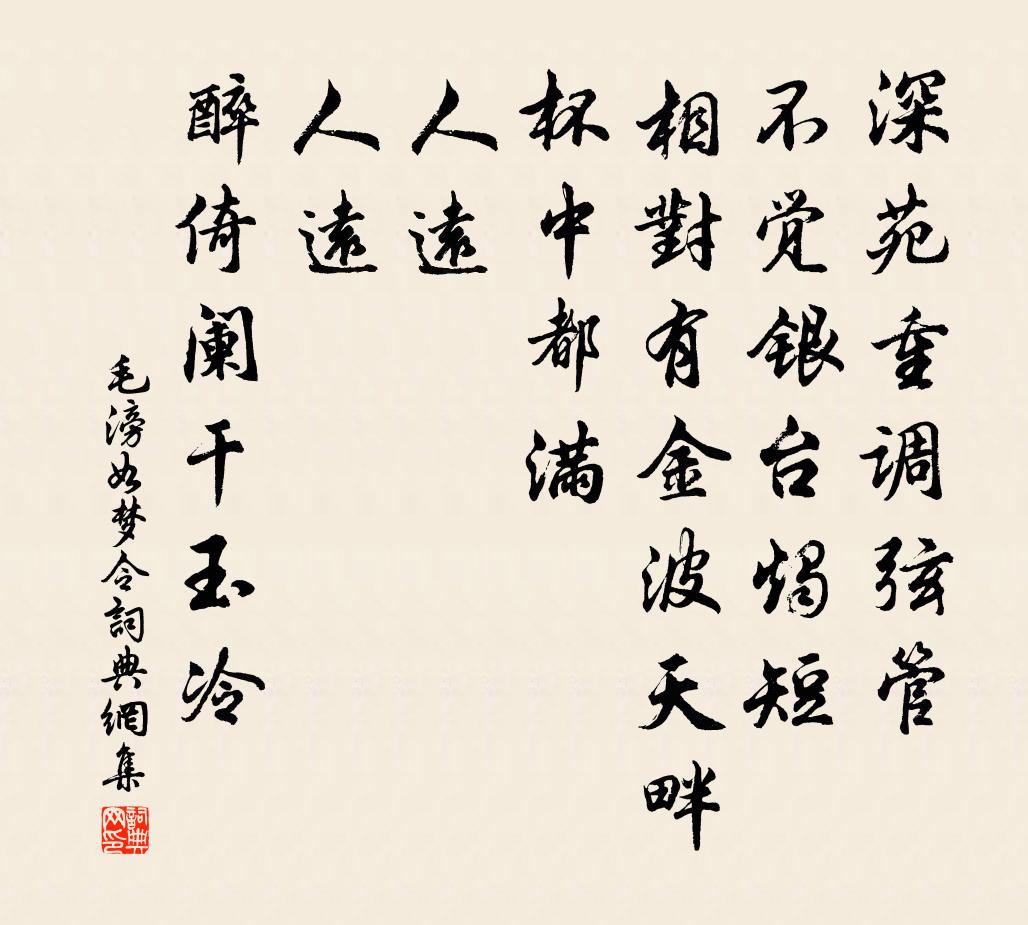 深苑重调弦管
不觉银台燭短
相對有金波天畔
杯中都满
人遠
人遠
醉倚阑干玉冷
毛滂如梦令詞典網集
詞典网印